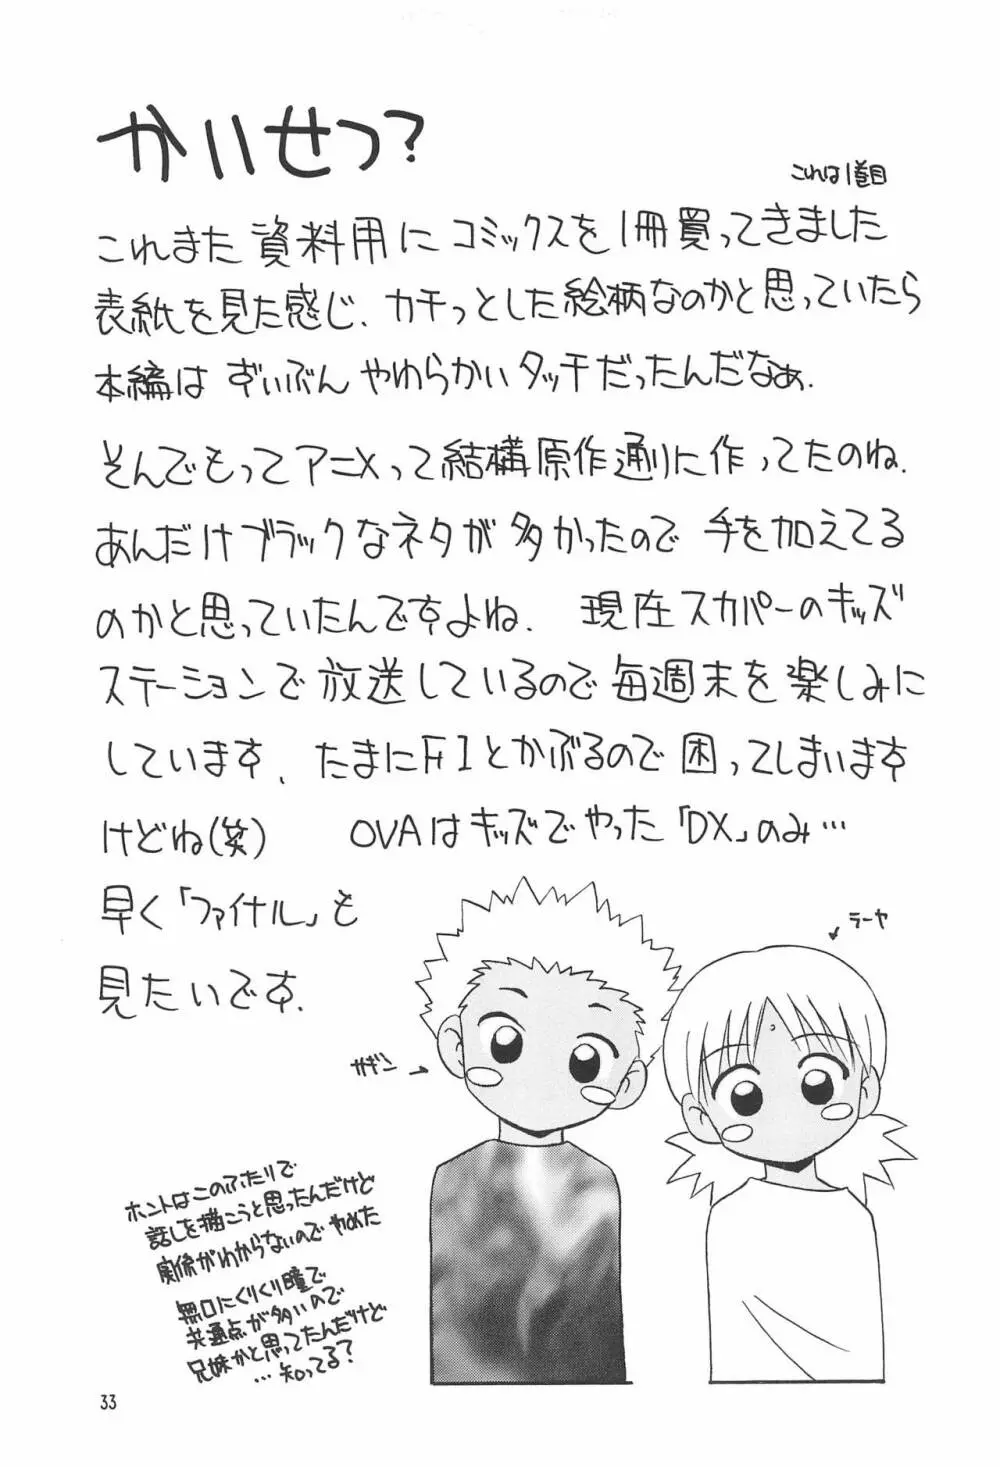 かいせつ?
これは1巻目
これまた資料用にコミックスを1冊買ってきました
表紙を見た感じ、カチっとした絵柄なのかと思っていたら
本編はずいぶんやわらかいタッチだったんだなぁ.
そんでもってアニメって結構原作通りに作ってたのね.
あんだけブラックなネタが多かったので手を加えてる
のかと思っていたんですよね. 現在スカパーのキッズ
ステーションで放送しているので毎週末を楽しみに
しています. たまにF1とかぶるので困ってしまいます
けどね(笑) OVAはキッズでやった「DX」のみ…
早く「ファイナル」も
見たいです.
ラーヤ
ガギン
ホントはこのふたりで
話しを描こうと思ったんだけど
関係がわからないのでやめた
無口にくりくり瞳で
共通点が多いので
兄妹かと思ってたんだけど
…知ってる?
33